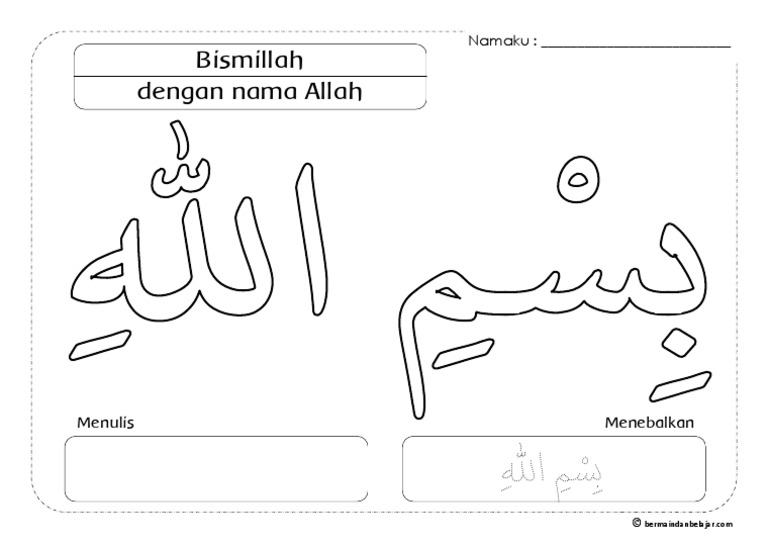 Namaku : ___________________________
Bismillah
dengan nama Allah
بِسْمِ اللّٰهِ
Menulis
Menebalkan
بِسْمِ اللّٰهِ
© bermaindanbelajar.com